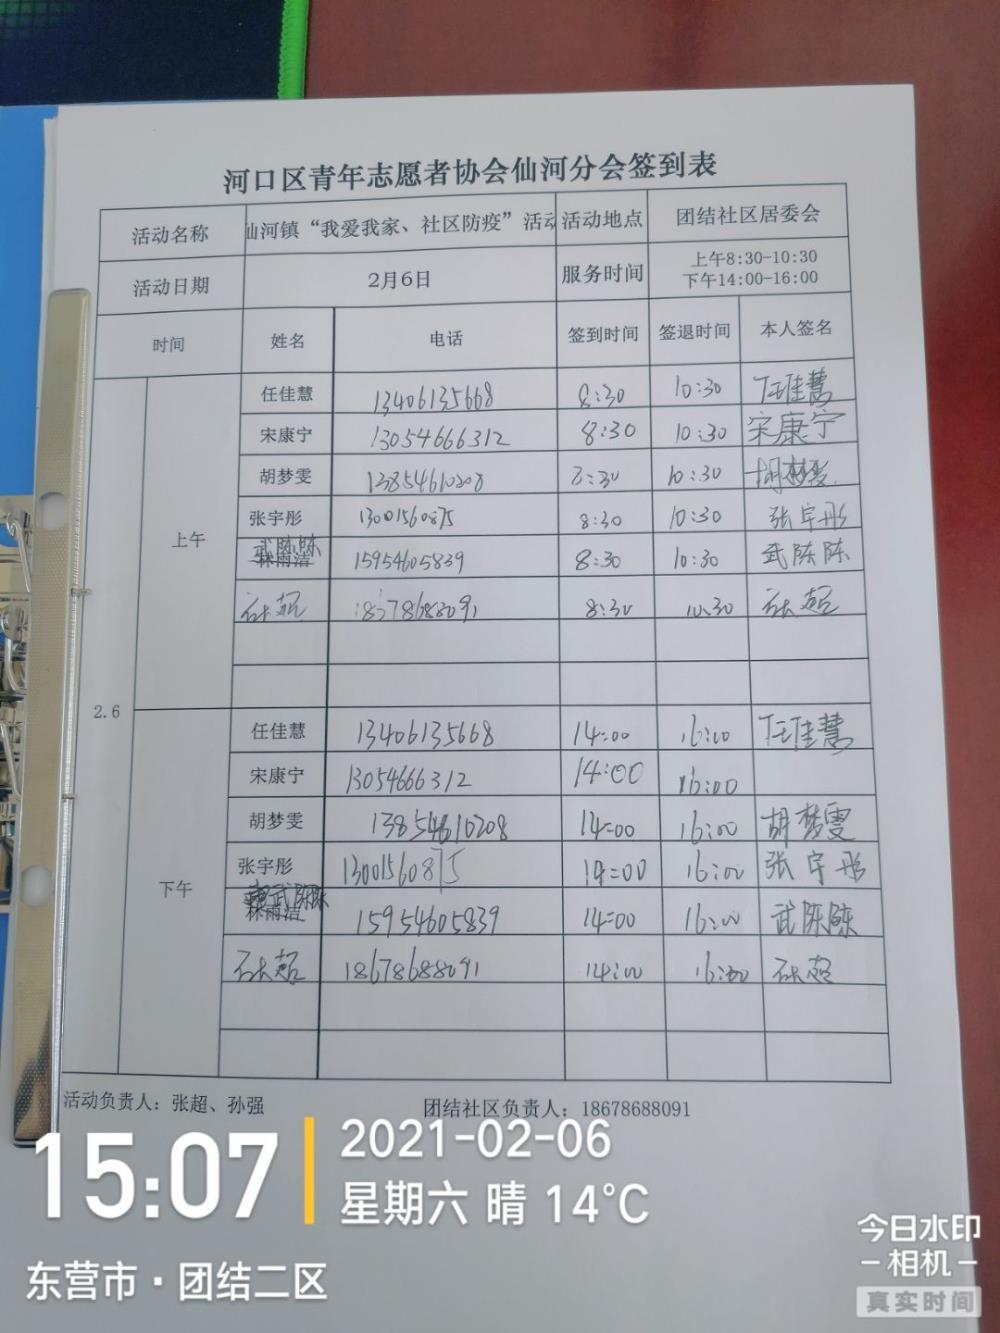 河口区青年志愿者协会仙河分会签到表
活动名称 仙河镇“我爱我家、社区防疫”活动 活动地点 团结社区居委会
活动日期 2月6日 服务时间 上午8:30-10:30
下午14:00-16:00
时间 姓名 电话 签到时间 签退时间 本人签名
2.6
上午
任佳慧 13406135668 8:30 10:30 任佳慧
宋康宁 13054666312 8:30 10:30 宋康宁
胡梦雯 13854610208 8:30 10:30 胡梦雯
张宇彤 13001560875 8:30 10:30 张宇彤
武陈陈
林雨洁 15954605839 8:30 10:30 武陈陈
石超 18678688091 8:30 10:30 石超
下午
任佳慧 13406135668 14:00 16:00 任佳慧
宋康宁 13054666312 14:00 16:00
胡梦雯 13854610208 14:00 16:00 胡梦雯
张宇彤 13001560875 14:00 16:00 张宇彤
武陈陈
林雨洁 15954605839 14:00 16:00 武陈陈
石超 18678688091 14:00 16:00 石超
活动负责人：张超、孙强 团结社区负责人：18678688091
15:07
2021-02-06
星期六 晴 14℃
东营市·团结二区
今日水印
-相机-
真实时间